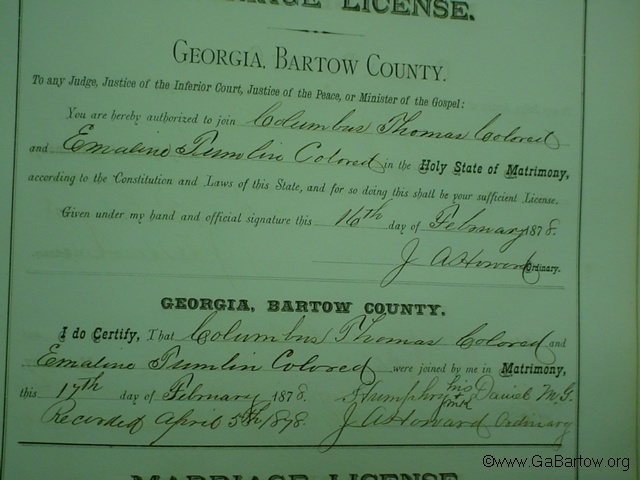 MARRIAGE LICENSE.
GEORGIA, BARTOW COUNTY.
To any Judge, Justice of the Inferior Court, Justice of the Peace, or Minister of the Gospel:
You are hereby authorized to join Columbus Thomas Colored
and Emaline Tumlin Colored in the Holy State of Matrimony,
according to the Constitution and Laws of this State, and for so doing this shall be your sufficient License.
Given under my hand and official signature this 16th day of February 1878.
J A Howard Ordinary.
GEORGIA, BARTOW COUNTY.
I do Certify, That Columbus Thomas Colored and
Emaline Tumlin Colored were joined by me in Matrimony,
this 17th day of February 1878. Humphry his + mrk Daniel M.G.
Recorded April 5th 1878. J A Howard Ordinary
MARRIAGE LICENSE.
©www.GaBartow.org